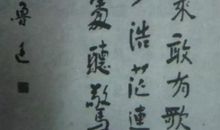 來敢有歌
浩茫連
處聽驚
魯迅